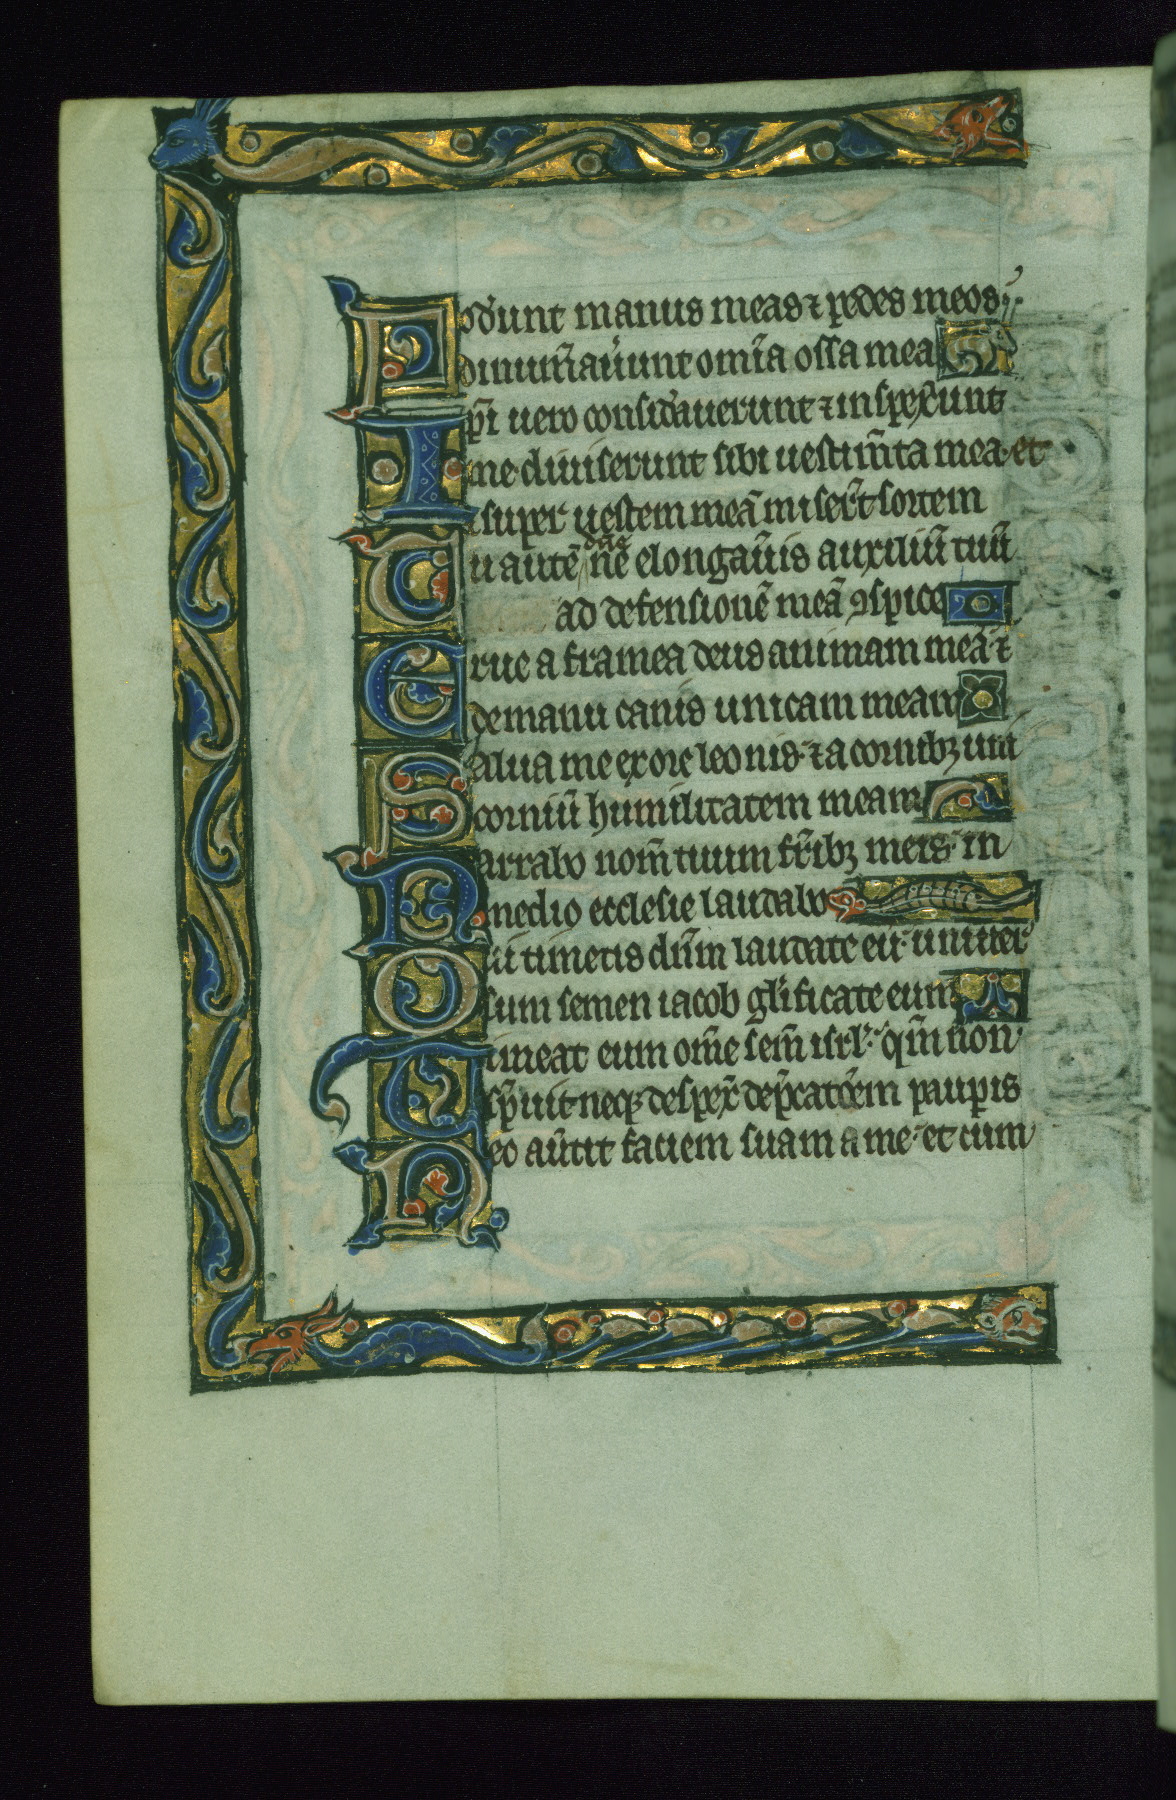 Fodẽunt manus meas ⁊ pedes meos
dinum̃aũunt om̃ia ossa mea
Ip̃i uero considãuerunt ⁊ inspex̃unt
me diuiserunt sibi uestim̃ta mea et
super uestem meã miser̃t sortem
Tu autẽ dñe ne elongaũis auxiliũ tuũ
ad defensionẽ meã ꝯspice
Erue a framea deus animam meã ⁊
de manu canis unicam meam
Salua me ex ore leonis ⁊ a cornibꝫ uni
corniũ humilitatem meam
Narrabo nom̃ tuum fr̃ibꝫ meis in
medio ecclesie laudabo
Qui timetis dñm laudate eũ uniuer
sum semen iacob gl̃ificate eum
Timeat eum om̃e sem̃ isrl̃ qm̃ non
sp̃uit neqꝫ despex̃ dep̃catõem paupis
Nec aũtit faciem suam a me et cum